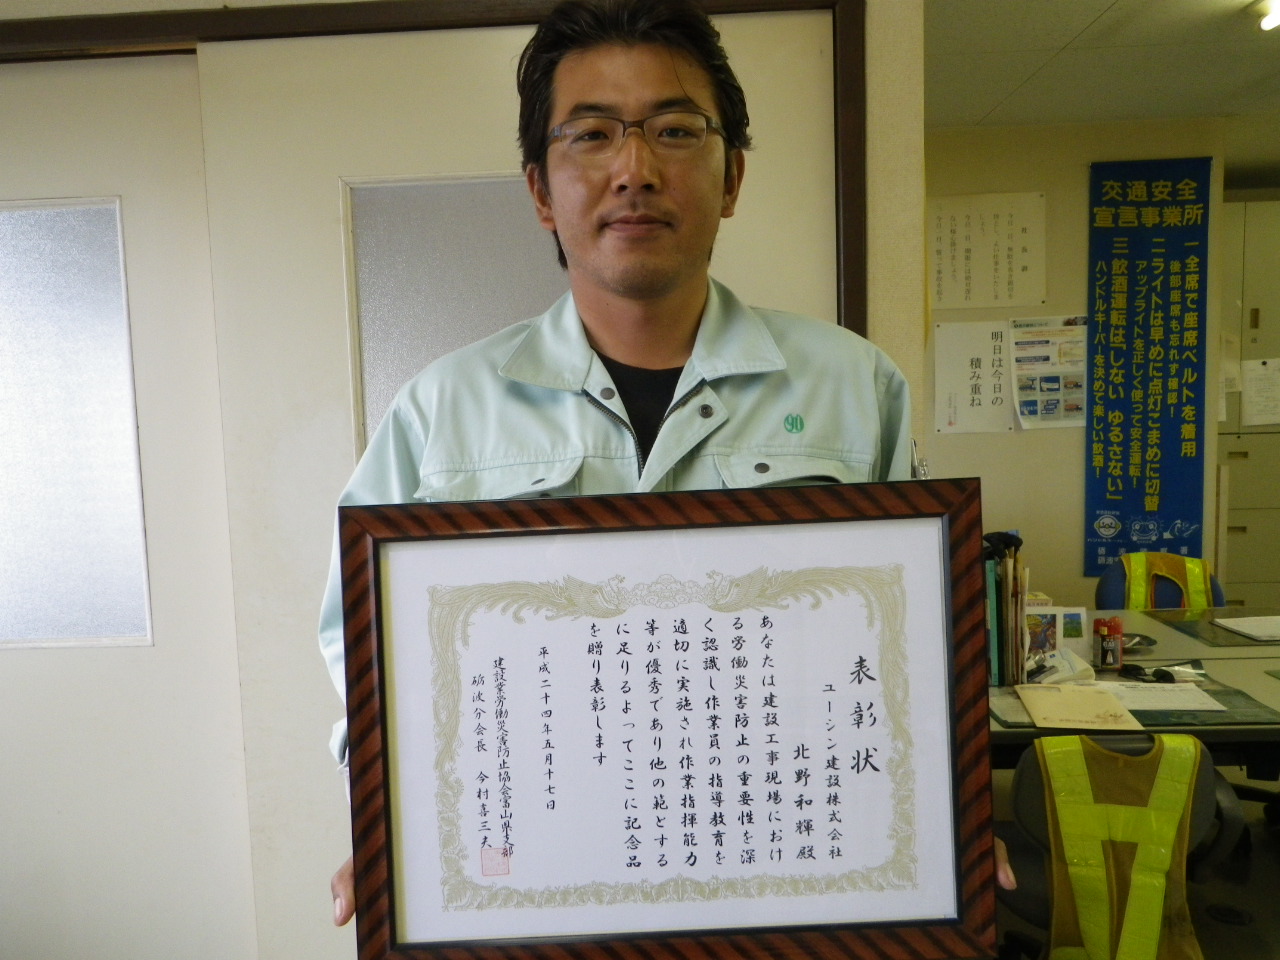 表彰状
ユーシン建設株式会社
北野和輝殿
あなたは建設工事現場におけ
る労働災害防止の重要性を深
く認識し作業員の指導教育を
適切に実施され作業指揮能力
等が優秀であり他の範とする
に足りるよってここに記念品
を贈り表彰します
平成二十四年五月十七日
建設業労働災害防止協会富山県支部
砺波分会長 今村喜三夫
交通安全
宣言事業所
一 全席で座席ベルトを着用
後部座席も忘れず確認!
二 ライトは早めに点灯こまめに切替
アップライトを正しく使って安全運転!
三 飲酒運転は「しない ゆるさない」
ハンドルキーパーを決めて楽しい飲酒!
明日は今日の
積み重ね
90